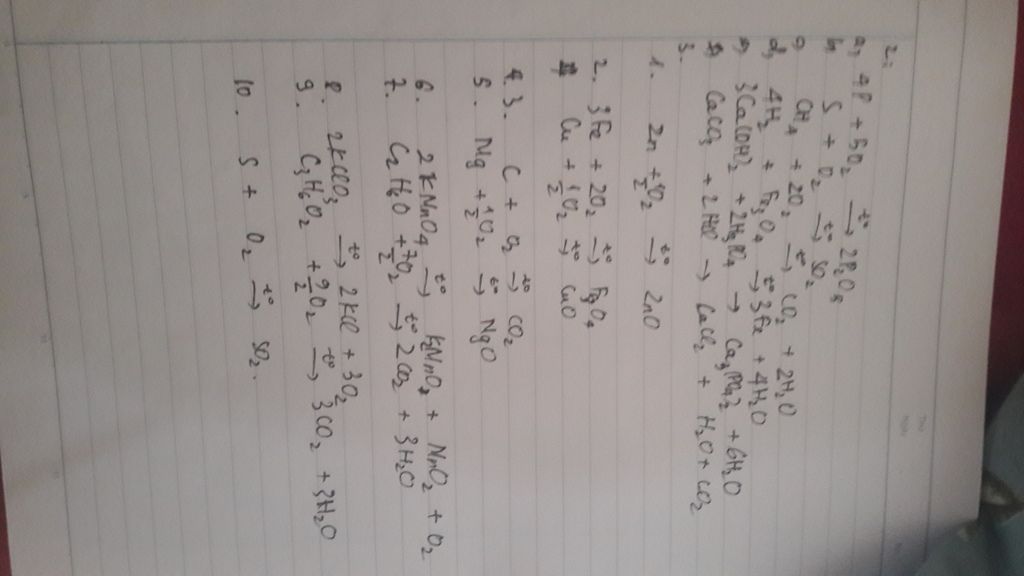 2.
a, 4P + 5O2 t°→ 2P2O5
b, S + O2 t°→ SO2
c, CH4 + 2O2 t°→ CO2 + 2H2O
d, 4H2 + Fe3O4 t°→ 3Fe + 4H2O
e, 3Ca(OH)2 + 2H3PO4 → Ca3(PO4)2 + 6H2O
f, CaCO3 + 2HCl → CaCl2 + H2O + CO2
3.
1. Zn + 1/2O2 t°→ ZnO
2. 3Fe + 2O2 t°→ Fe3O4
Cu + 1/2O2 t°→ CuO
4. 3. C + O2 t°→ CO2
5. Mg + 1/2O2 t°→ MgO
6. 2KMnO4 t°→ K2MnO4 + MnO2 + O2
7. C2H6O + 7/2O2 t°→ 2CO2 + 3H2O
8. 2KClO3 t°→ 2KCl + 3O2
9. C3H6O2 + 9/2O2 t°→ 3CO2 + 3H2O
10. S + O2 t°→ SO2.